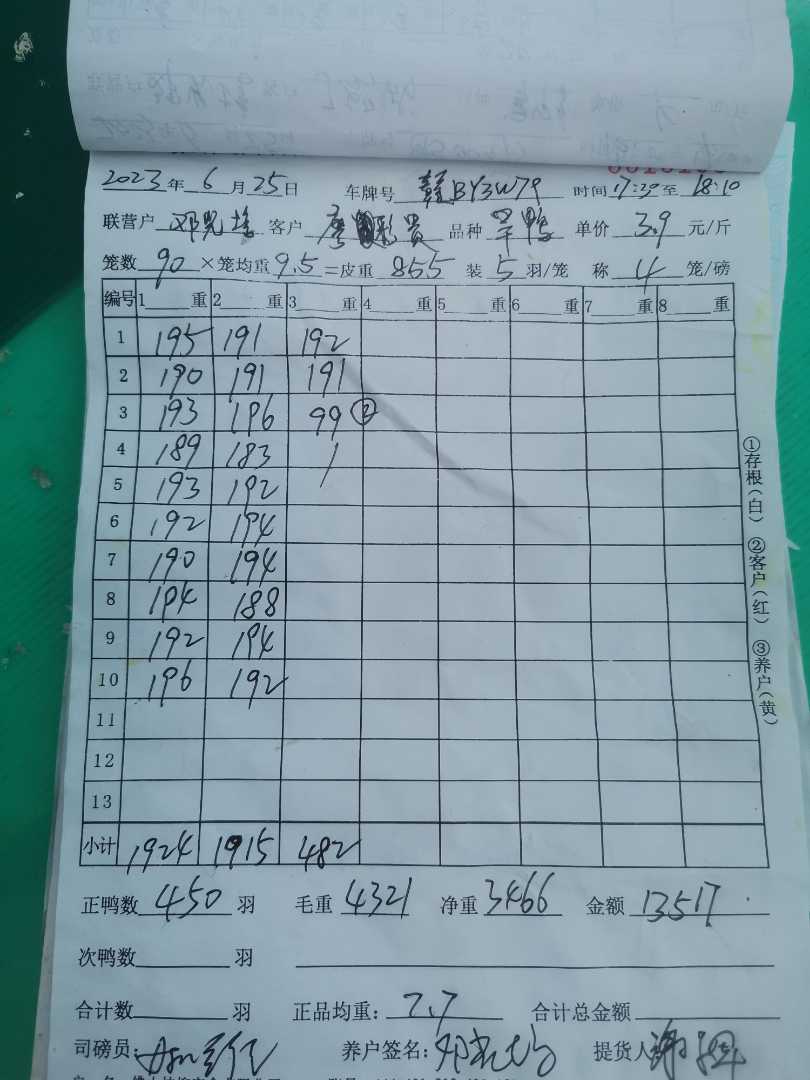 2023年6月25日 车牌号 赣BY3W79 时间17:29至18:10
联营户 邓 客户 廖 彩贵 品种 旱鸭 单价 3.9 元/斤
笼数 90 ×笼均重 9.5 =皮重 855 装 5 羽/笼 称 4 笼/磅
编号 1 重 2 重 3 重 4 重 5 重 6 重 7 重 8 重
1 195 191 192
2 190 191 191
3 193 196 99 ②
4 189 183 /
5 193 192
6 192 194
7 190 194
8 194 188
9 192 194
10 196 192
11
12
13
小计 1924 1915 482
正鸭数 450 羽 毛重 4321 净重 3466 金额 13517
次鸭数 羽
合计数 羽 正品均重: 7.7 合计总金额
司磅员: 养户签名: 提货人 谢
①存根(白) ②客户(红) ③养户(黄)